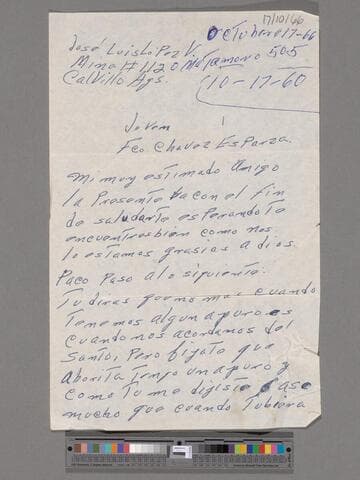 17/10/66
octubre 17-66
José Luis Lopez V.
Mina #112 o Matamoros 505
Calvillo Ags.
10-17-60
Joven
Fco Chavez Esparza.
Mi muy estimado Amigo
la Presente va con el fin
de saludarte esperando te
encuentres bien como nos
lo estamos grasias a dios.
Paco Paso a lo siguiente.
Tu diras que no mas cuando
Tenemos algun apuro es
cuando nos acordamos del
Santo, Pero fijate que
ahorita Tengo un apuro y
como Tu me digiste ase
mucho que cuando Tubiera